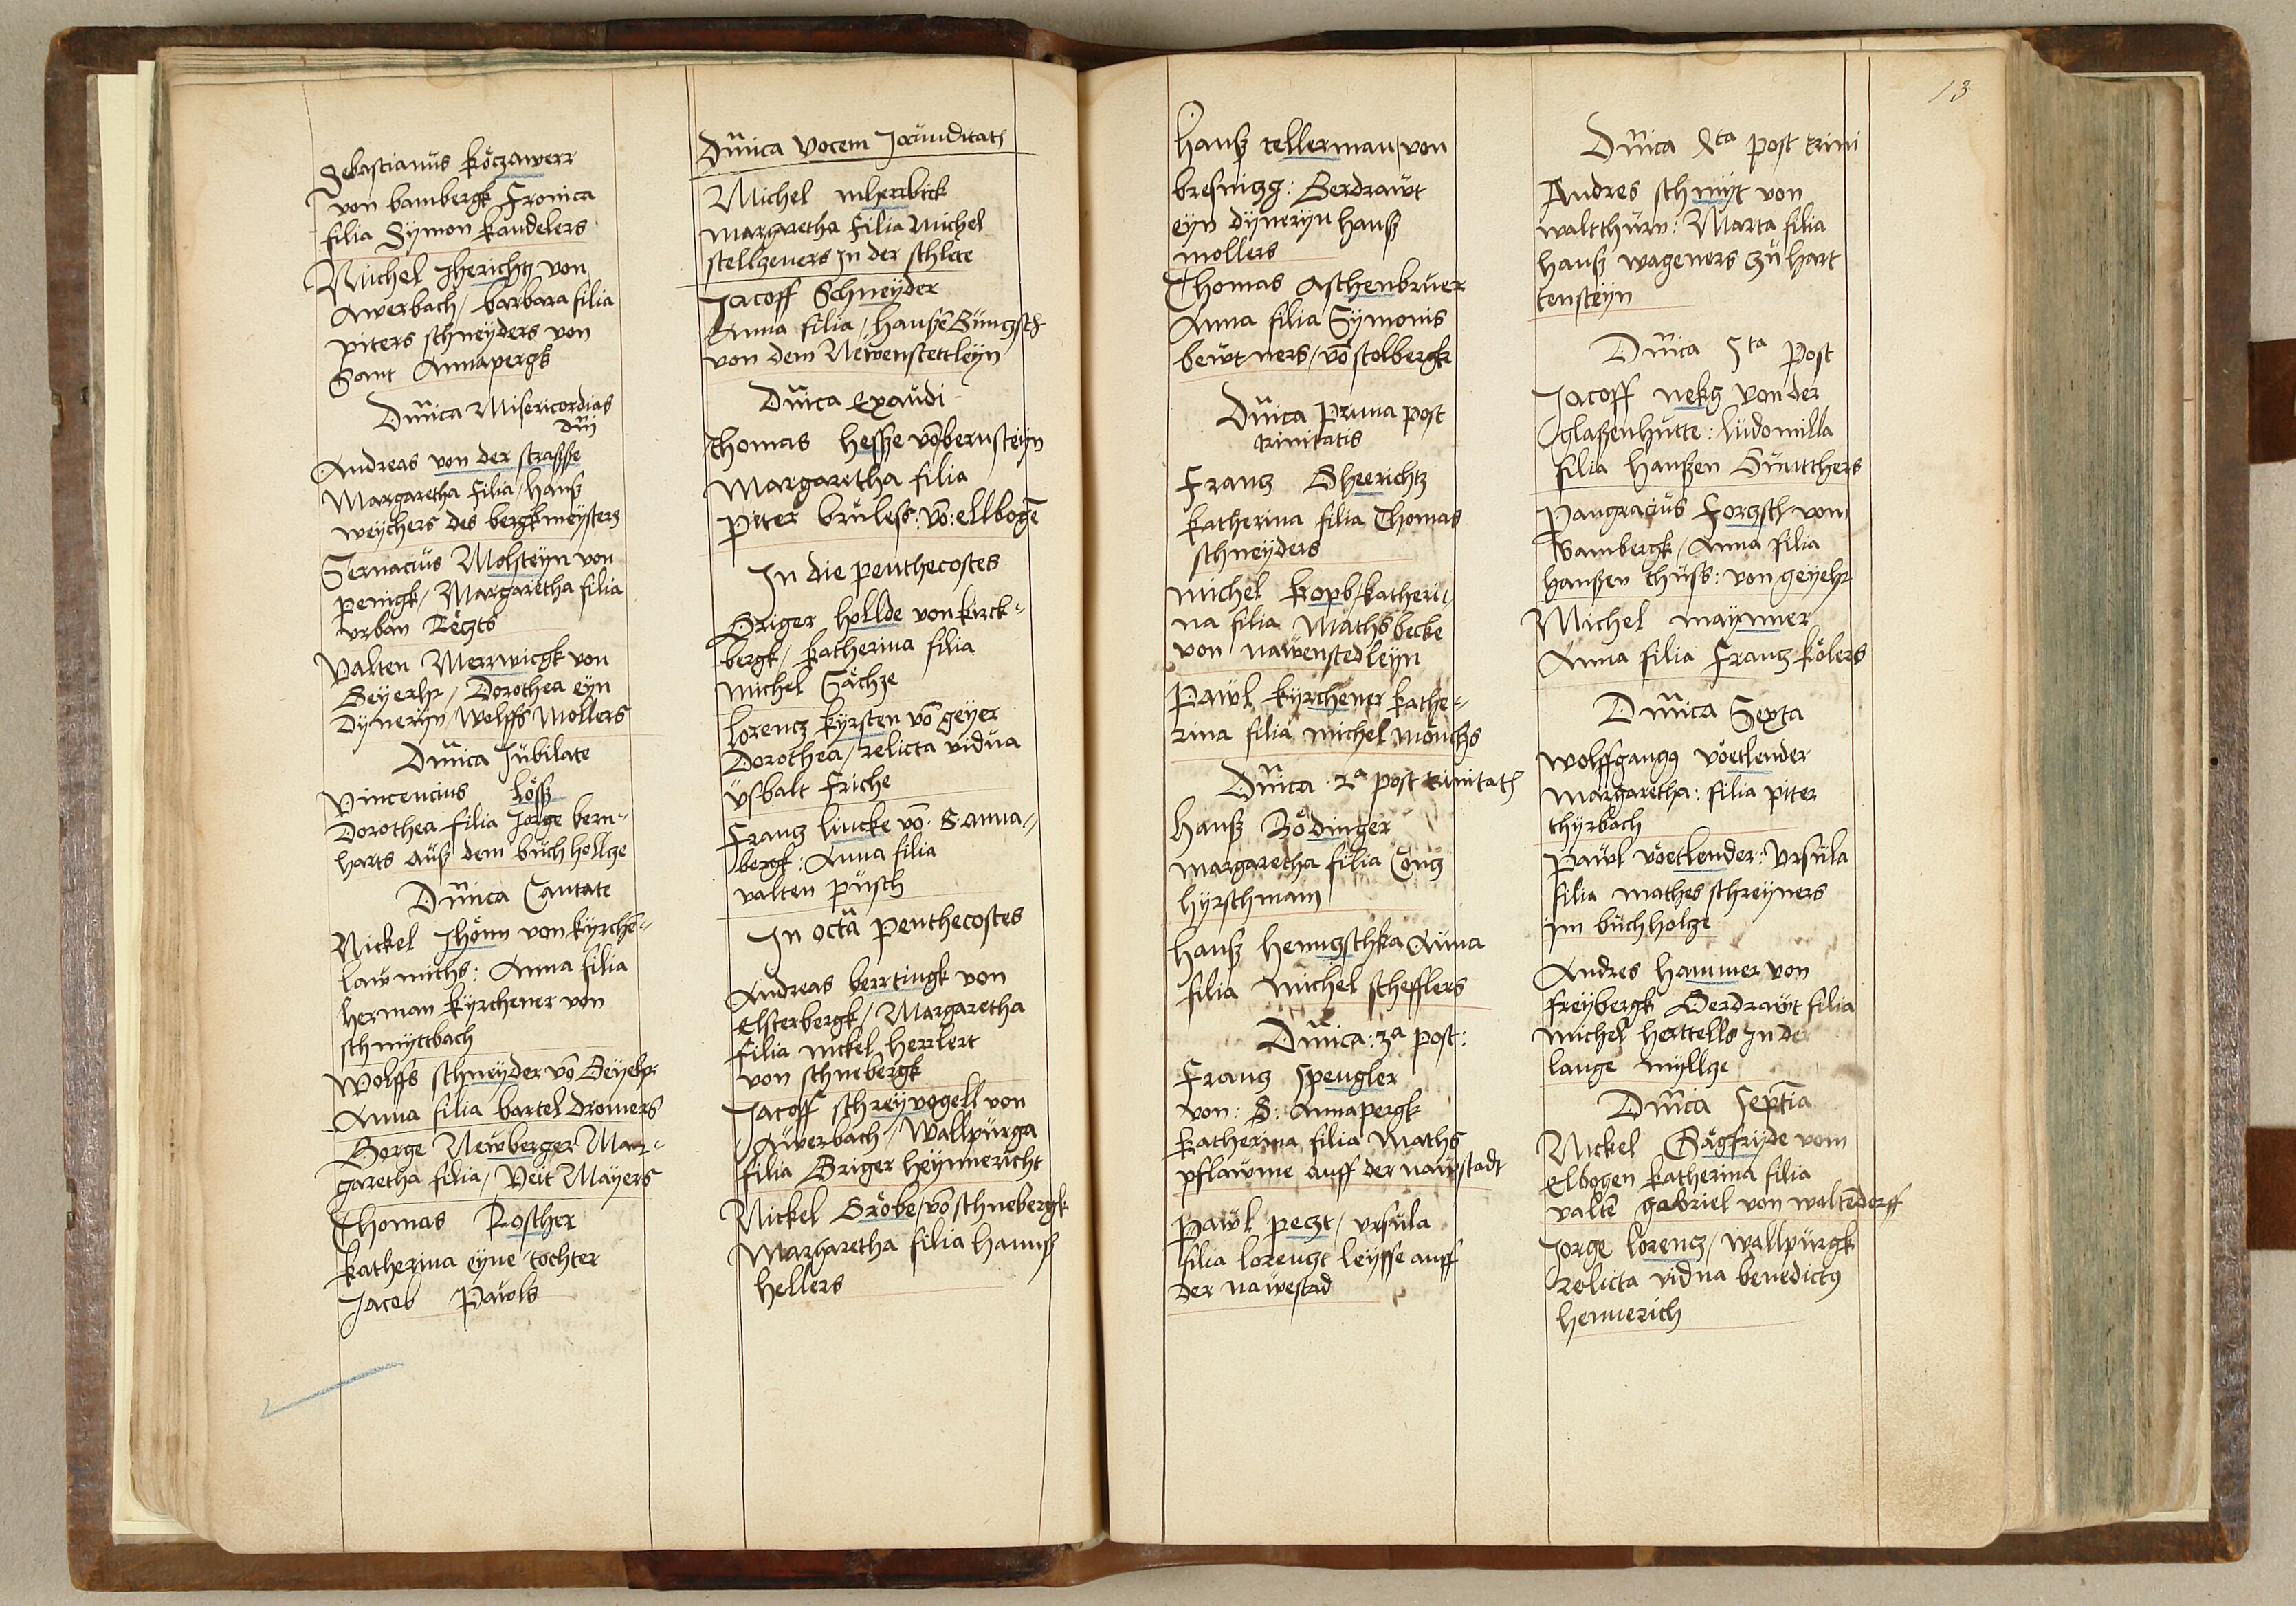 Sebastianus Köczawerr
von bambergk Fronica
filia Symon kandelers
Michel Jherichtz von
Awerbach / barbara filia
piters schneyders von
Sant Annapergk
Dnica Misericordias
dni
Andreas von der strassse
Margaretha filia / hanß
weychers des bergkmeysters
Servacius Molsteyn von
penigk / Margaretha filia
urban Rechts
Valten Merrwicgk von
Geyerhr / Dorothea eyn
Dyneryn Wolffs Mollers
Dnica Jubilate
Vincencius Löss
Dorothea filia Jorge bern-
harts auß dem buchholtze
Dnica Cantate
Nickel Jhönn von kyrche-
lawmichs: Anna filia
herman kyrchener von
schmyttbach
Wolffs schneyder vo Geyehr
Anna filia bartel dromers
Gorge Newberger Mar-
garetha filia / Veit Mayers
Thomas Roscher
katherina eyne tochter
Jacob Pawls
Dnica Vocem Jocunditatis
Michel mherrbick
margaretha filia Michel
stellzeners In der schlcte
Jacoff Schneyder
Anna filia / Hanße Günczsch
von dem Newenstettleyn
Dnica Exaudi
Thomas Hessze vo bernsteyn
Margaretha filia
piter brules: vo: ellboge
In die penthecostes
Griger hollde von kirck-
bergk / katherina filia
Michel Sachze
Lorencz kyrsten vo geyer
Dorothea / relicta vidua
usbalt Friche
Francz Lincke vo S. anna-
bergk: Anna filia
valten püsch
In octa Penthecostes
Andreas berrtingk von
Elsterbergk / Margaretha
filia nickel Herrlert
von schnebergk
Jacoff schreyvogell von
Awerbach / Wallpurga
filia Griger heynnericht
Nickel Gröbe / vo schnebergk
Margaretha filia Hannß
Hellers
Hanß tellerman / von
bresniczg: Gerdrawt
eyn dyneryn hanß
mollers
Thomas Aschenbruer
Anna filia Symonis
bewtners / vo stolbergk
Dnica Prima post
trinitatis
Francz Gheerichtz
katherina filia Thomas
schneyders
Michel kopb / katheri-
na filia Mathsbecke
von nawenstedleyn
Pawl kyrchener kathe-
rina filia michel mönchs
Dnica 2a post trinitatis
Hanß Rödinger
margaretha filia Concz
hyrschman
Hanß Henczschka Anna
filia michel schefflers
Dnica: 3a post:
Francz Spengler
von: S: Annapergk
katherina filia Maths
pflawme auff der nawstadt
Pawl peczt / ursula
filia Lorenczt leysse auff
der nawestad
13
Dnica 4ta post trini
Andres schmyt von
waltthurn: Marta filia
Hanß wageners zu Hart
tensteyn
Dnica 5ta Post
Jacoff nekg von der
glaßenhütte: Ludomilla
filia Hanßen Güntthers
Pangracius Forczsch von
Bambergk / Anna filia
hanßen thuss: von geyehr
Michel maynner
Anna filia Francz kölers
Dnica Sexta
Wolffgangus vöetlender
Margaretha: filia piter
thyrbach
Pawl vöetlender: Ursula
filia mathes schreyners
im buchholtze
Andres Hammer von
freybergk Gerdrawt filia
michel herttells In der
lange myllcze
Dnica Septia
Nickel Sägfryde vom
Elbogen katherina filia
valte gabriel von waltedorff
Jorge Lorencz / Wallpürgk
relicta vidua benedictus
Hennerich